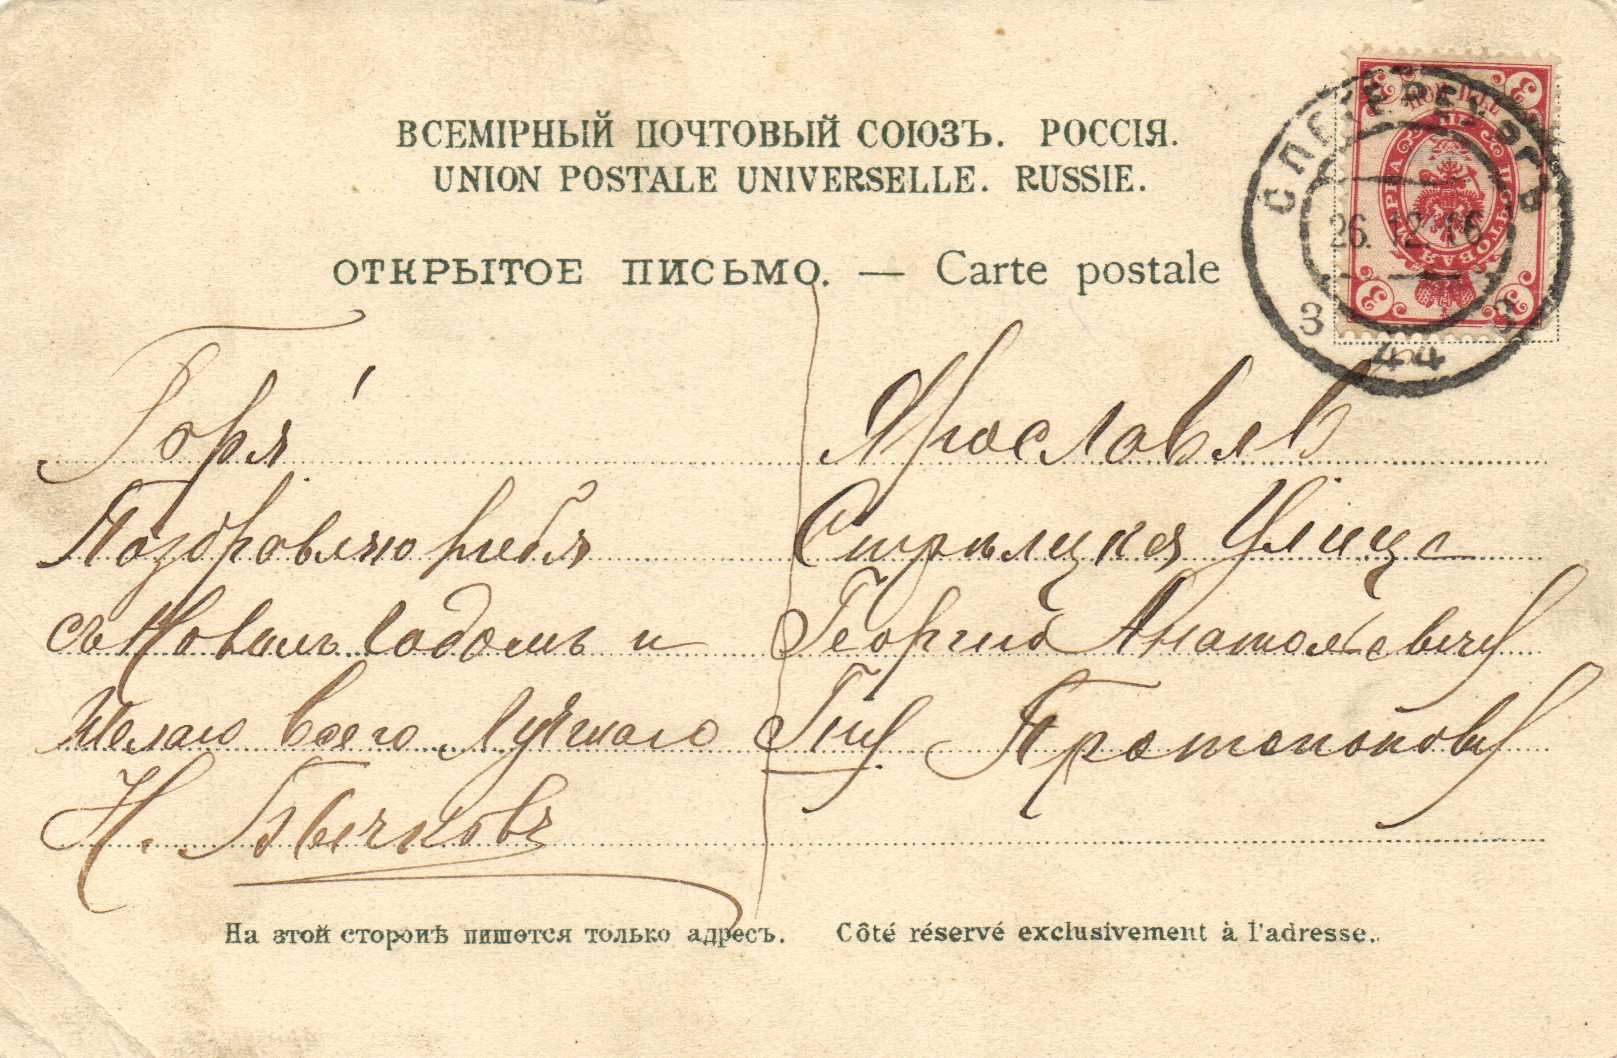 ВСЕМІРНЫЙ ПОЧТОВЫЙ СОЮЗЪ. РОССІЯ.
UNION POSTALE UNIVERSELLE. RUSSIE.
ОТКРЫТОЕ ПИСЬМО. — Carte postale
С.ПЕТЕРБУРГЪ
26.12.16
3 3
44
МАРКА ПОЧТОВАЯ
3 3
3 3
Горя!
Поздровляю тебя
съ Новымъ Годомъ и
Желаю всего Лучшаго
Н. Бычковъ
Ярославль
Стрѣлецкая Улица
Георгию Анатольевичу
Гну Протопопову
На этой сторонѣ пишется только адресъ. Côté réservé exclusivement à l'adresse.